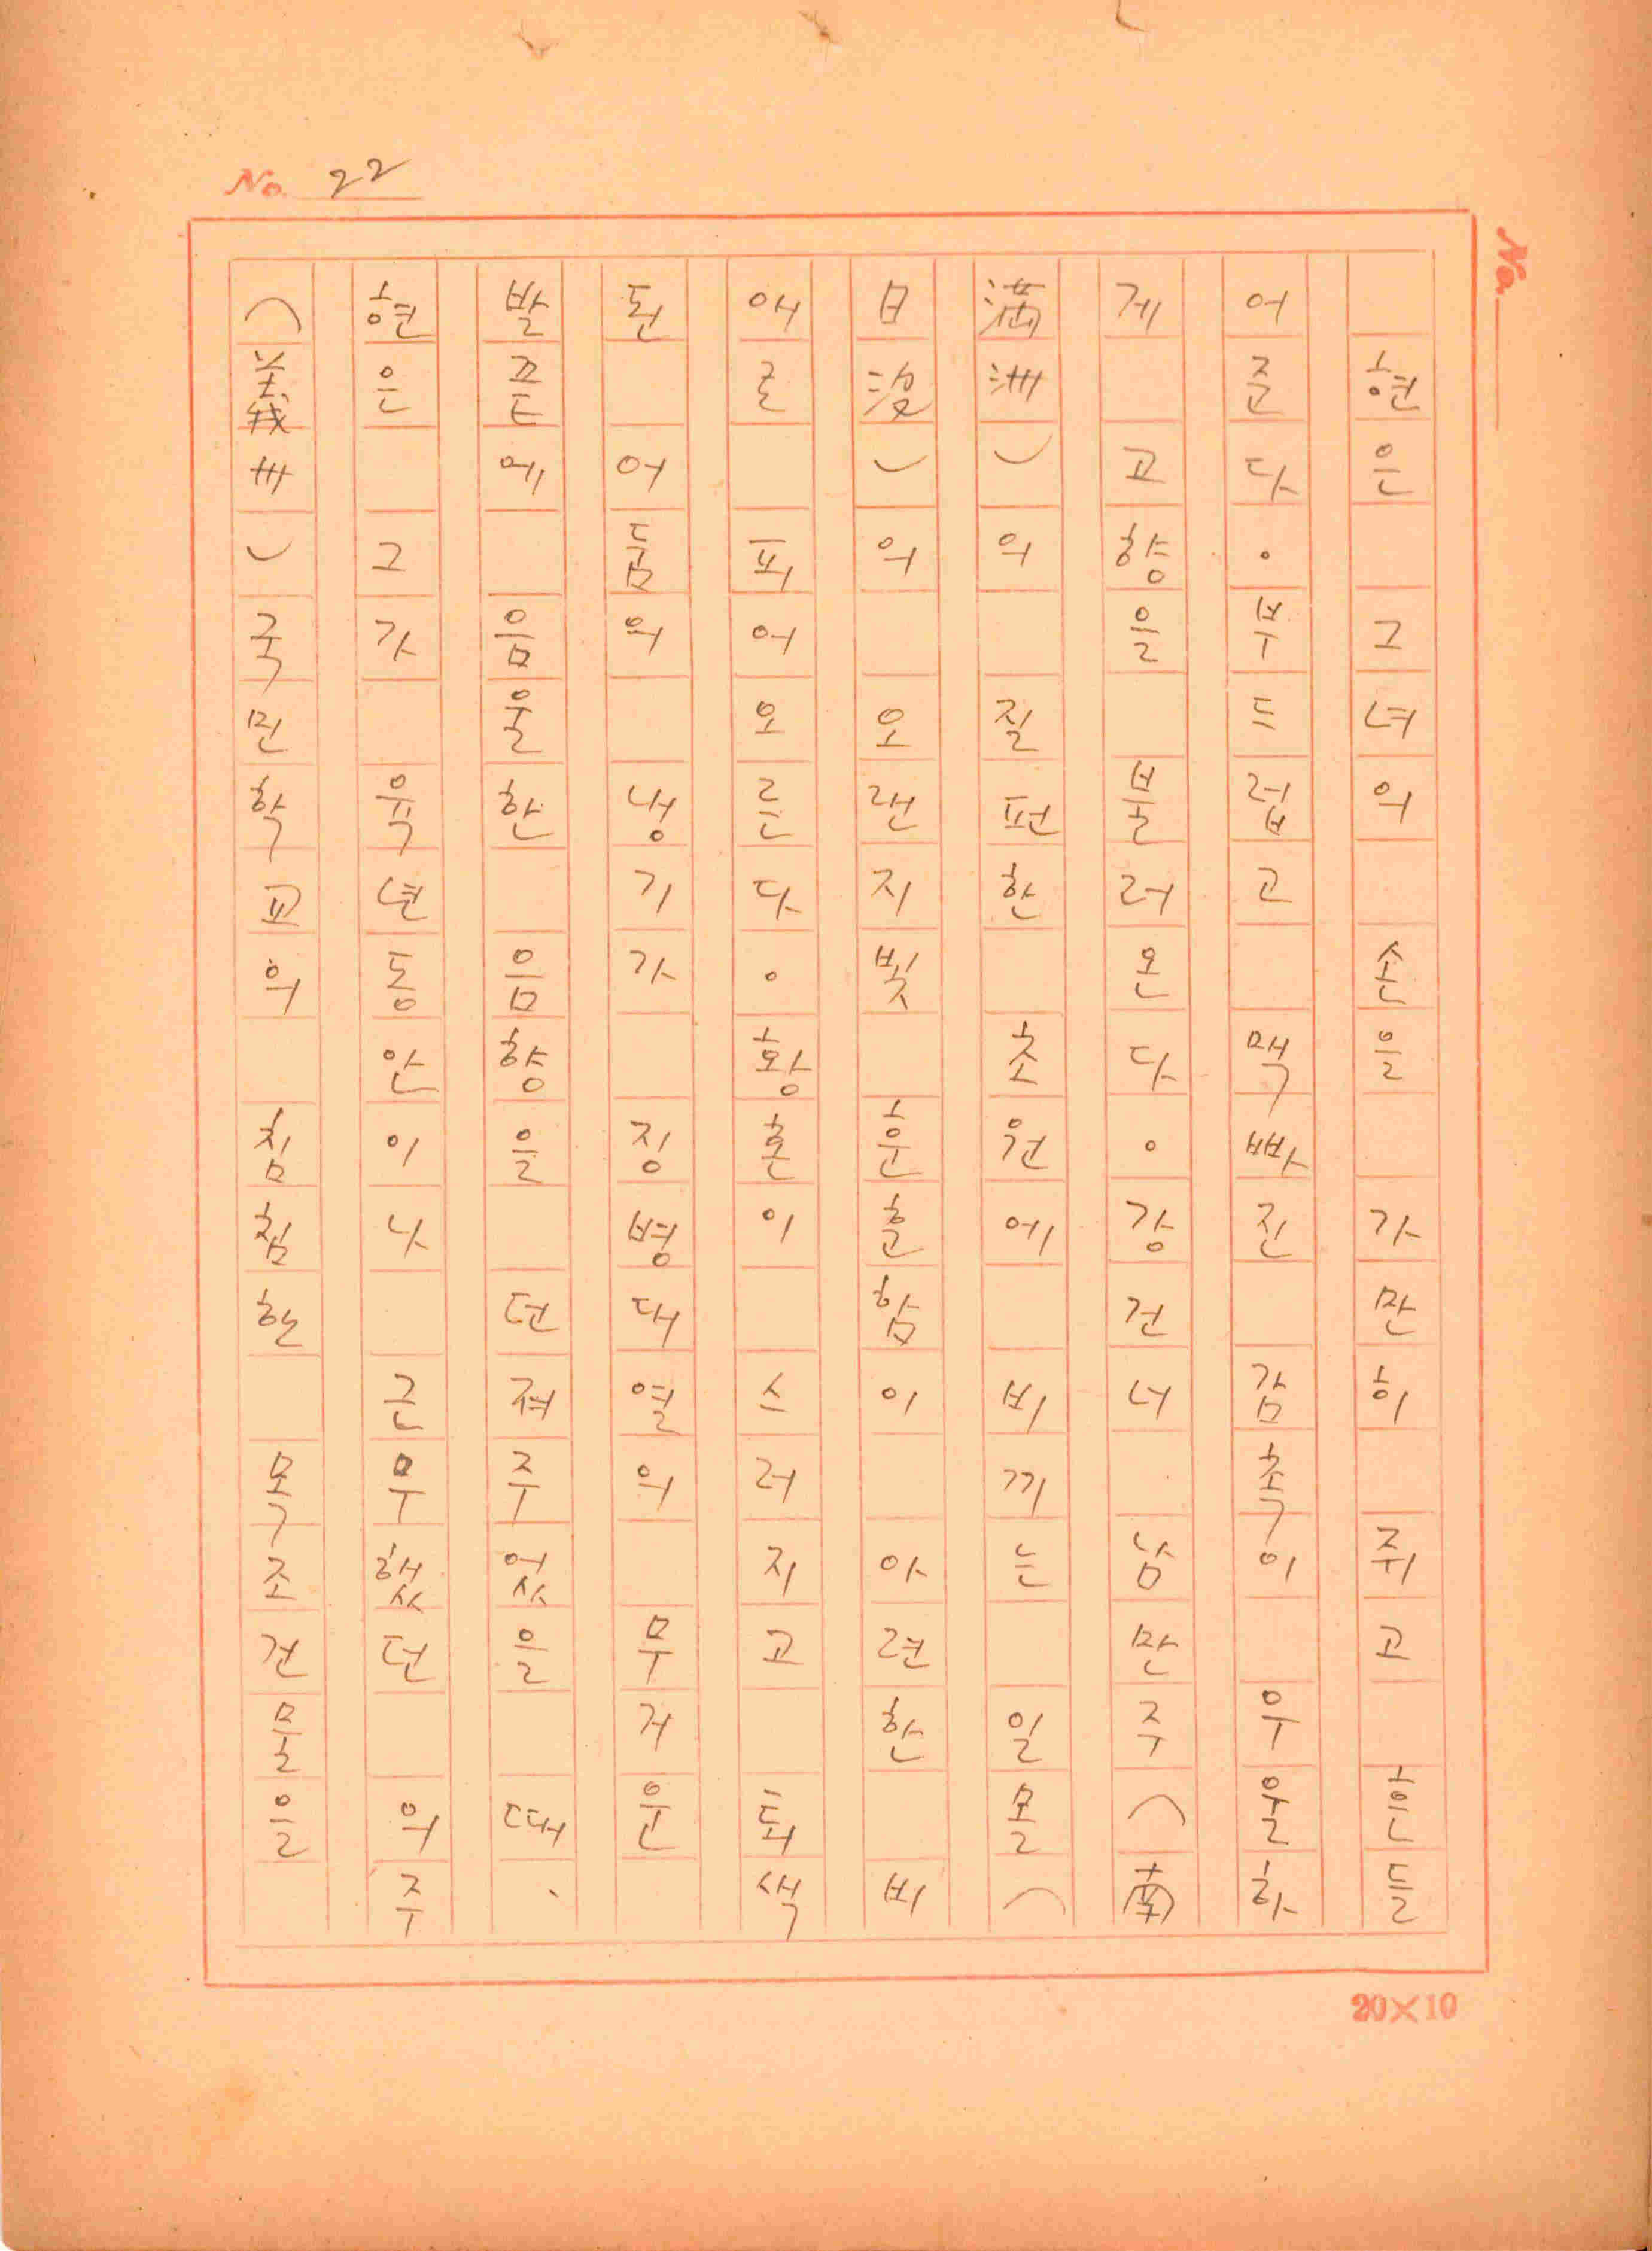 No. 22
No.
현은 그녀의 손을 가만히 쥐고 흔들
어준다。부드럽고 맥빠진 감촉이 우울하
게 고향을 불러온다。강건너 남만주(南
滿洲)의 질펀한 초원에 비끼는 일몰(
日沒)의 오랜지빛 훈훈함이 아련한 비
애로 피어오른다。황혼이 스러지고 퇴색
된 어둠의 냉기가 징병대열의 무거운
발끝에 음울한 음향을 던져주었을 때、
현은 그가 육년동안이나 근무했던 의주
(義州) 국민학교의 침침한 목조건물을
20×10